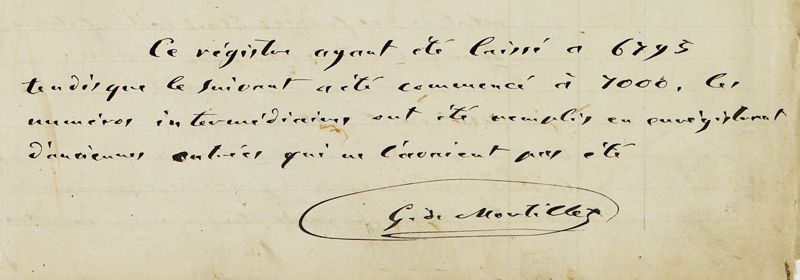 Ce régistre ayant été laissé à 6795
tendisque le suivant a été commencé à 7000, les
numéros intermédiaires ont été remplis en enrégistrant
d'anciennes entrées qui ne l'avaient pas été
G. de Mortillet